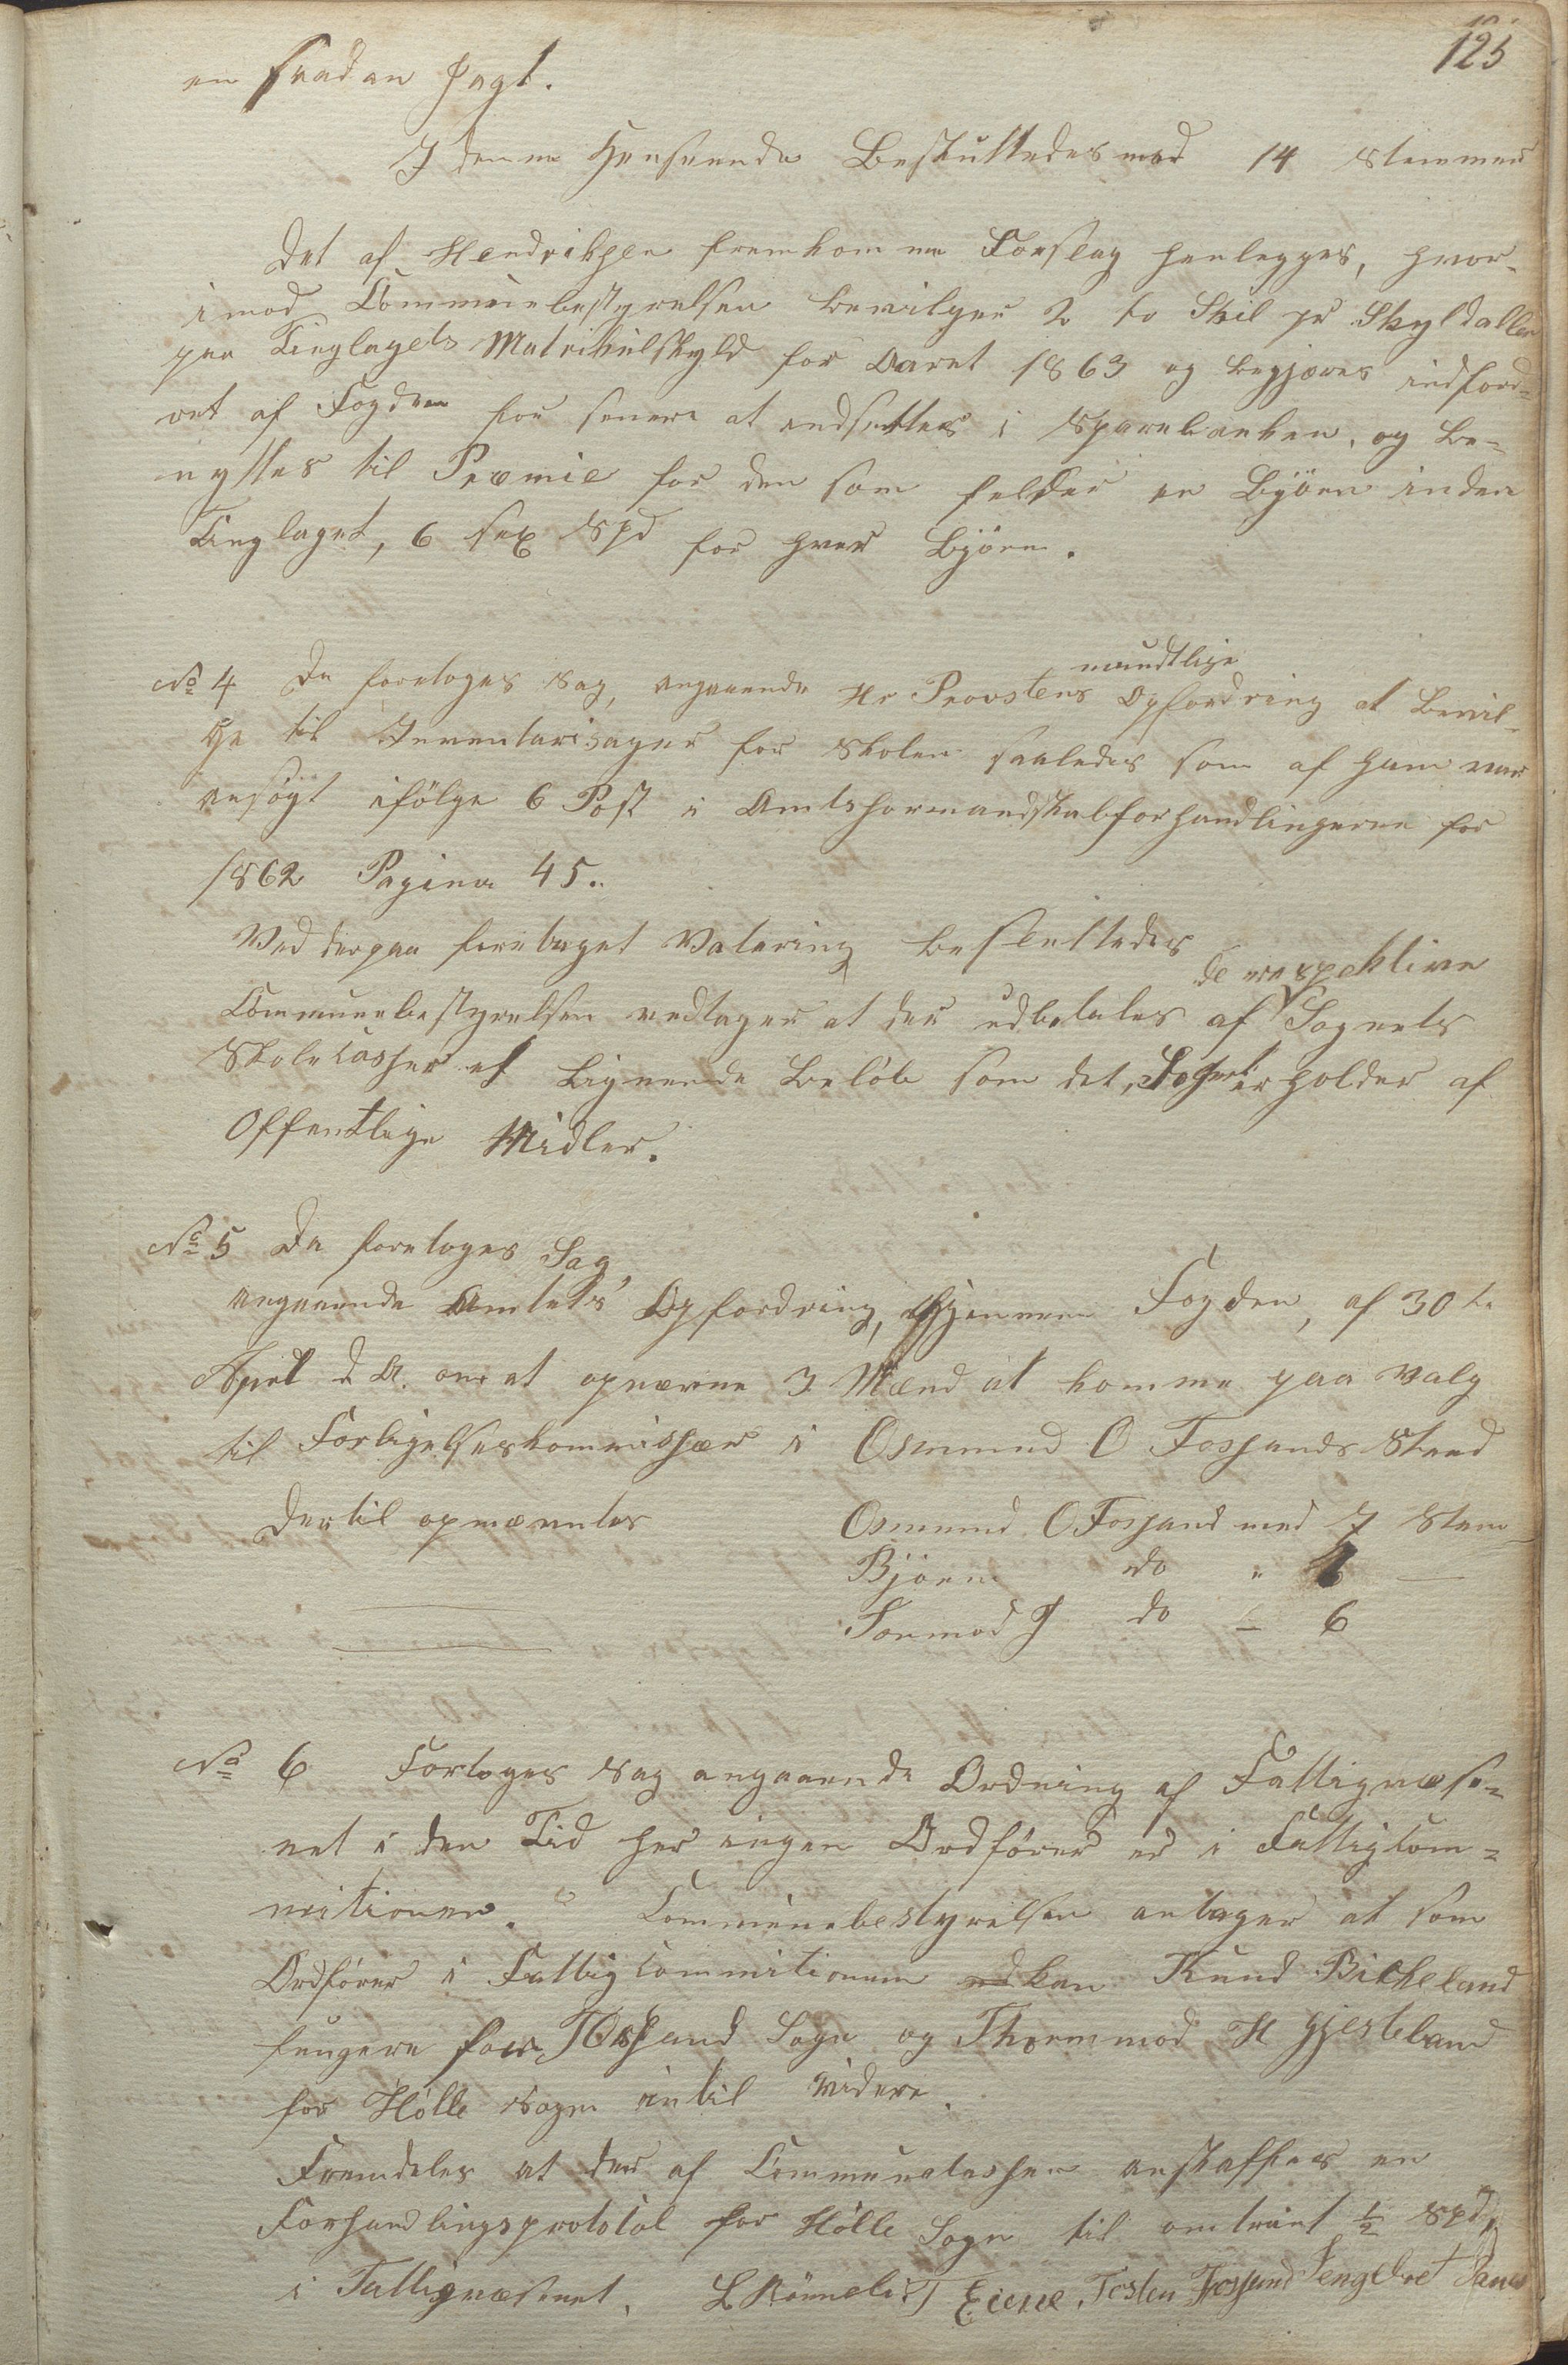 125
en saadan Jagt.
I denne Henseende Besluttedes med 14 Stemmer
Det af Hendriksen fremkomne Forslag henlegges, hvor-
imod Communebestyrelsen bevilger 2 to Skil pr Skyldaller
paa Tinglagets Matrikulskyld for Aaret 1863 og begjæres indford-
ret af Fogden for senere at indsættes i Sparebanken, og be-
nyttes til Præmie for den som felder en Björn inden
Tinglaget, 6 sex Spd for hver Björn.
No 4 Da foretoges Sag, angaaende Hr Provstens mundtlige Opfordring at bevil-
ge til Inventarisager for Skolen saaledes som af ham var
ansögt ifölge 6 Post i Amtsformandskabforhandlingerne for
1862 Pagina 45.
Ved derpaa foretaget Votering besluttedes
de respektive
Communebestyrelsen vedtager at der udbetales af Sognets
Skolecasser et Lignende Belöb som det, Sognet erholder af
Offentlige Midler.
No 5 Da foretoges Sag
angaaende Amtets Opfordring, gjennem Fogden, af 30te
April d. A. om at opnævne 3 Mænd at komme paa Valg
til Forligelseskommissær i Osmund O Fossands Sted
Dertil opnævntes Osmund O Fossand med 7 Stem
Björn do " 6 —
Tormod J do — 6
No 6 Fortoges Sag angaaende Ordning af Fattigvæse-
net i den Tid her ingen Ordförer er i Fattigcom-
mitionen. Communebestyrelsen antager at som
Ordförer i Fattigcommitionen kan Knud Bicheland
fungere for Fossand Sogn og Thormmod H Gjesteland
for Hölle Sogn indtil Videre.
Fremdeles at der af Communecassen anskaffes en
Forhandlingsprotokol for Hölle Sogn til omtrænt ½ Spd,
i Fattigvæsenet. L Rönneli Eiene Tosten Fossand Fengelvet